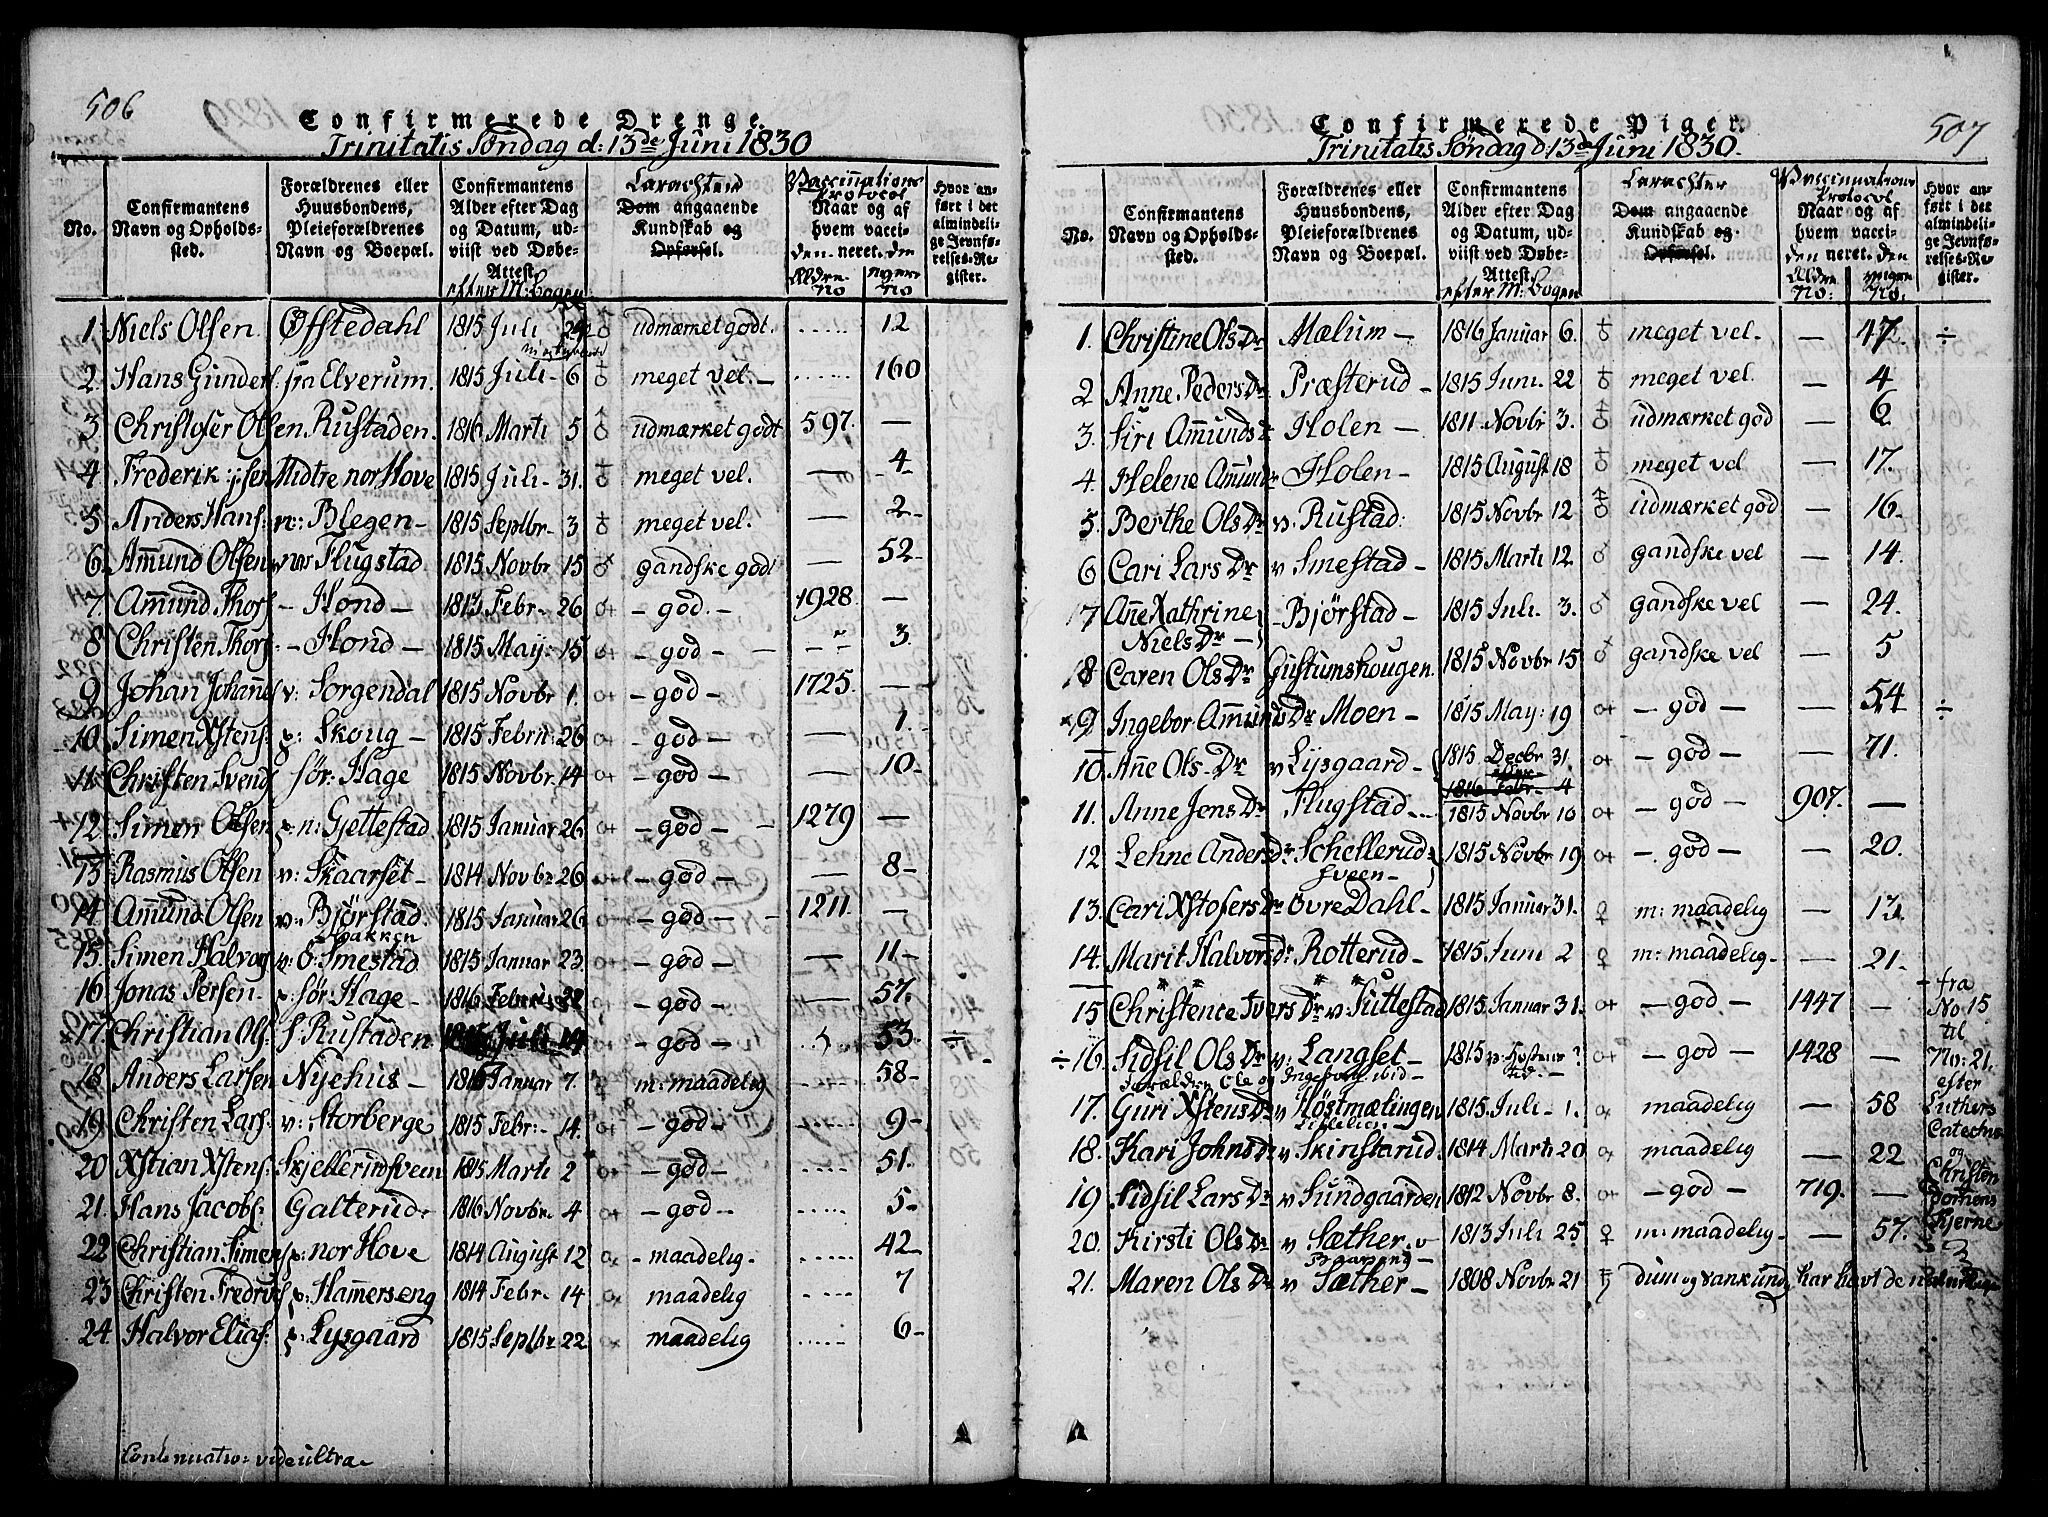 506
Confirmerede Drenge.
Trinitatis Søndag d: 13de Juni 1830
No.
Confirmantens Navn og Opholds-sted.
Forældrenes eller Huusbondens, Pleieforældrenes Navn og Boepæl.
Confirmantens Alder efter Dag og Datum, ud-viist ved Døbe-Attest.
efter M: Bogen
Carachteer
Dom angaaende Kundskab og Opførsel.
Vaccinations Protocol
Naar og af hvem vacci-neret.
den Ældre No
den yngre No
Hvor an-ført i det almindeli-ge Jevnfø-relses-Re-gister.
1. Niels Olsen Øfstedahl 1815 Juli 29 ♁ udmærket godt. ..... 12
2. Hans Gunders: fra Elverum. 1815 Juli 6 ♁ meget vel. – ..... 160
3. Christofer Olsen Rustaden. 1816 Marti 5 ♁ udmærket godt 597. —
4 Frederik Midtre nor Hove 1815 Juli – 31. ♁ meget vel. — 4 –
5 Anders Hans: n: Blegen – 1815 Septbr 3 ♁ meget vel. — 2 –
6. Amund Olsen nor Flugstad 1815 Novbr 15 ♂ gandske godt — 52 –
7. Amund Thors – Hond – 1813 Febr – 26 – god – 1928. —
8 Christen Thors – Hond – 1815 May: 15 – god – 3.
9 Johan Johannes v: Sorgendal 1815 Novbr 1. – god – 1725. —
10. Simen Xstens: Skoug – 1815 Februr 26 – god – — 1.
11. Christen Svends sør: Hage 1815 Novbr. 14 – god – — 10 –
12. Simen Olsen n: Gjettestad 1815 Januar 26 – god – 1279 —
13 Rasmus Olsen v: Skaarset – 1814 Novbr 26 – god – — 8 –
14 Amund Olsen v: Bjørstad. bakken 1815 Januar 26 – god – 1211. —
15. Simen Halvors Ø: Smestad 1815 Januar 23 – god – — 11 –
16 Jonas Persen – sør: Hage – 1816 22 – god – — 57.
17. Christian Ols: s: Rustaden 1815 Juli 19 – god – 53. ÷
18 Anders Larsen Nyehus – 1815 Januar 7. ♀ m: maadelig ..... 58 –
19. Christen Lars: v: Storberge 1815 Febr: – 14. – god – ..... 9 –
20 Xstian Xstens: Skjellerudsveen 1815 Marti 2 – god – ..... 51.
21. Hans Jacobs: Galterud: 1816 Novbr. 4 – god – ..... 5 –
22 Christian Simens: nor Hove 1814 August 12 – maadelig – ..... 42 –
23. Christen Fredrics: Hammerseng 1814 Febr – 14 maadelig ..... 7
24. Halvor Elias: Lysgaard 1815 Septbr. 22 maadelig ..... 6 –
Continuatio vide ultra –
507
Confirmerede Piger.
Trinitatis Søndag d 13de Juni 1830.
No.
Confirmantens Navn og Opholds-sted.
Forældrenes eller Huusbondens, Pleieforældrenes Navn og Boepæl.
Confirmantens Alder efter Dag og Datum, ud-viist ved Døbe-Attest.
efter M: Bogen
Carachter
Dom angaaende Kundskab og Opførsel.
Vaccinations Protocol
Naar og af hvem vacci-neret.
den Ældre No:
den yngre No.
Hvor an-ført i det almindeli-ge Jevnfø-relses-Re-gister.
1. Christine Ols Dr Mælum – 1816 Januar 6. ♁ meget vel. — 47. ÷
2 Anne Peders Dr Præsterud – 1815 Juni 22 ♁ meget vel. — 4
3. Siri Amunds Dr Holen – 1811 Novbr 3. ♁ udmærket god — 6
4. Helene Amunds Dr Holen – 1815 August 18 ♁ meget vel — 17.
5. Berthe Ols Dr v: Rustad: 1815 Novbr 12 ♁ udmærket god — 16.
6 Cari Lars Dr v Smestad – 1815 Marti 12. ♂ gandske vel — 14.
7 Anne Kathrine Niels Dr – Bjørstad – 1815 Juli 3. ♂ gandske vel — 24.
8 Caren Ols Dr Gustumshougen. 1815 Novbr 15 ♂ gandske vel — 5
9 Ingebor Amunds Dr Moen – 1815 May: 19 – god – — 54 ÷
10. Anne Ols – Dr v Lysgaard – 1815 Decbr 31. efter 1816 Febr – 4 – god – — 71.
11. Anne Jens Dr Flugstad – 1815 Novbr 10 – god – 907. —
12 Lehne Anders Dr Schellerud sveen – 1815 Novbr 19 – god – — 20.
13. Cari Xstofers Dr Øvre Dahl – 1815 Januar 31. ♀ m: maadelig — 13
14. Marit Halvors Dr Rotterud – 1815 Juni 2 ♀ m: maadelig – — 21 –
15 Christence Ivers Dr v: Suttestad 1815 Januar 31. – god – 1447 —
÷ 16. Sidsil Ols Dr v: Langset – 1815 v: Høstens Tid. – ? – god – 1428 —
Forældre Ole og Ingeborg ibid –
17. Guri Xstens Dr v Høstmælingen 1815 Juli – 1. maadelig — 58
18. Kari Johns Dr v Skinstarud. 1814 Marti 20 maadelig — 22
19 Sidsil Lars Dr v Sundgaarden 1812 Novbr 8. – god – 719. —
20. Kirsti Ols Dr v Sæther. 1813 Juli 25 ♀ m: maadelig – — 57.
21. Maren Ols Dr v Sæther – 1808 Novbr 21 ♄ dum og vankundig har havt de
– fra No 15 til No: 21. efter Luthers Catechis og Christendommens Kjerne